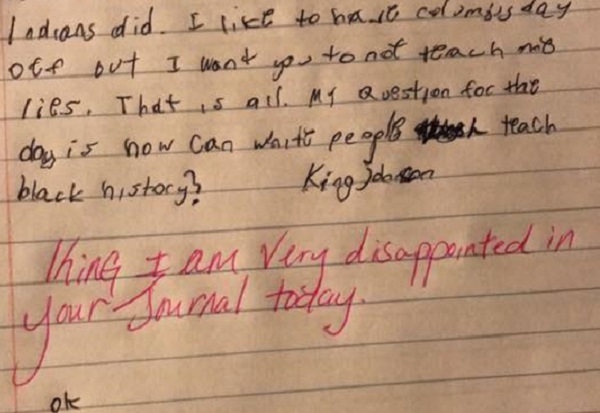 Indians did. I like to have columbus day
off but I want you to not teach me
lies. That is all. My question for the
day is how can white people teach
black history?     King Johnson
King I am very disappointed in
your Journal today.
ok